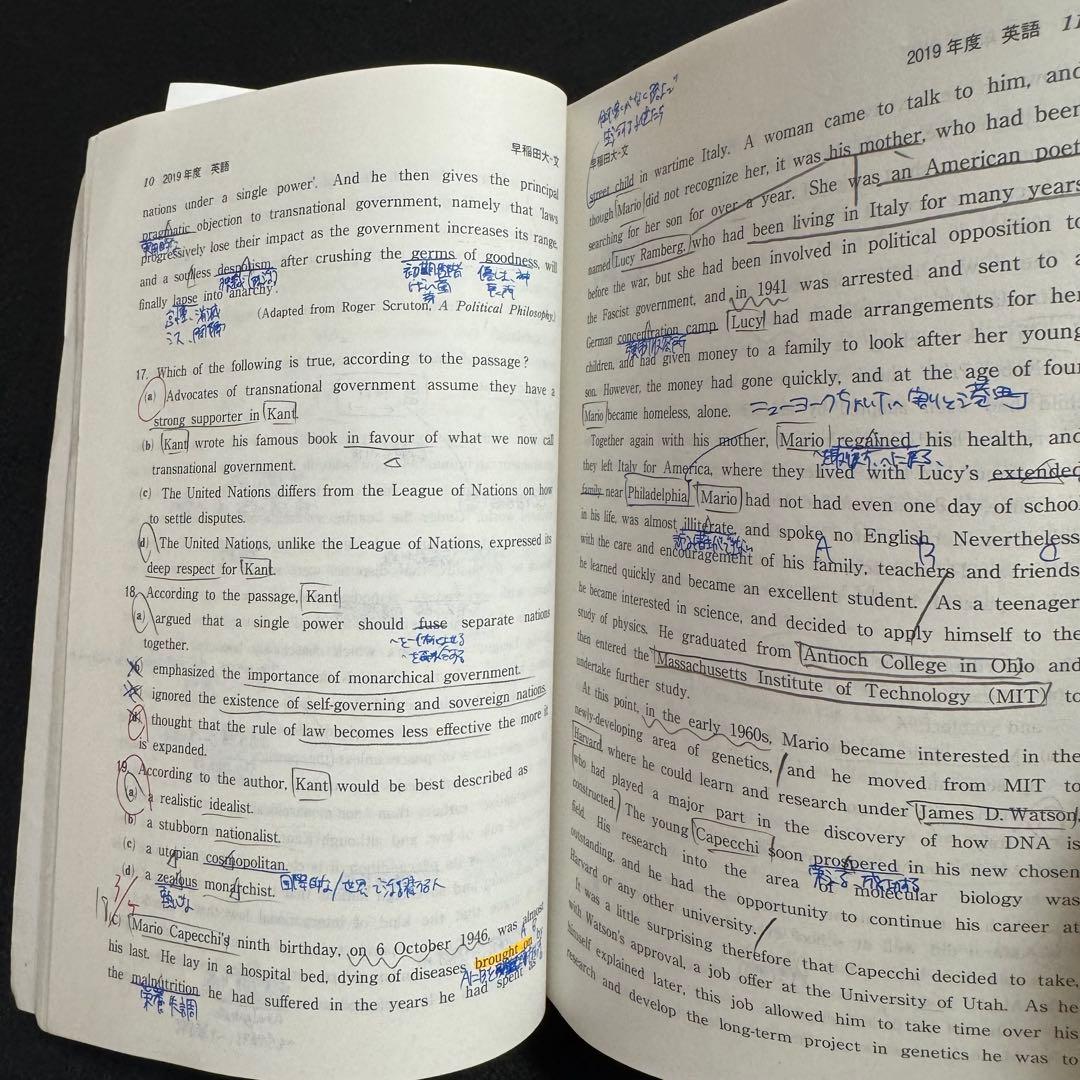 10 2019年度 英語
早稲田大-文
nations under a single power'. And he then gives the principal
pragmatic objection to transnational government, namely that 'laws
progressively lose their impact as the government increases its range,
and a soulless despotism, after crushing the germs of goodness, will
finally lapse into anarchy'.
(Adapted from Roger Scruton, A Political Philosophy.)
17. Which of the following is true, according to the passage?
(a) Advocates of transnational government assume they have a
strong supporter in Kant.
(b) Kant wrote his famous book in favour of what we now call
transnational government.
(c) The United Nations differs from the League of Nations on how
to settle disputes.
(d) The United Nations, unlike the League of Nations, expressed its
deep respect for Kant.
18. According to the passage, Kant
(a) argued that a single power should fuse separate nations
together.
(b) emphasized the importance of monarchical government.
(c) ignored the existence of self-governing and sovereign nations.
(d) thought that the rule of law becomes less effective the more it
is expanded.
19. According to the author, Kant would be best described as
(a) a realistic idealist.
(b) a stubborn nationalist.
(c) a utopian cosmopolitan.
(d) a zealous monarchist.
(C) Mario Capecchi's ninth birthday, on 6 October 1946, was almost
his last. He lay in a hospital bed, dying of diseases brought on by
the malnutrition he had suffered in the years he had spent as a
栄養失調
2019年度 英語 11
早稲田大-文
street child in wartime Italy. A woman came to talk to him, and
though Mario did not recognize her, it was his mother, who had been
searching for her son for over a year. She was an American poet
named Lucy Ramberg, who had been living in Italy for many years
before the war, but she had been involved in political opposition to
the Fascist government, and in 1941 was arrested and sent to a
German concentration camp. Lucy had made arrangements for her
children, and had given money to a family to look after her young
son. However, the money had gone quickly, and at the age of four
Mario became homeless, alone.
Together again with his mother, Mario regained his health, and
they left Italy for America, where they lived with Lucy's extended
family near Philadelphia. Mario had not had even one day of school
in his life, was almost illiterate, and spoke no English. Nevertheless,
with the care and encouragement of his family, teachers and friends
A B C
he learned quickly and became an excellent student. As a teenager
he became interested in science, and decided to apply himself to the
study of physics. He graduated from Antioch College in Ohio and
then entered the Massachusetts Institute of Technology (MIT) to
undertake further study.
At this point, in the early 1960s, Mario became interested in the
newly-developing area of genetics, and he moved from MIT to
Harvard, where he could learn and research under James D. Watson,
who had played a major part in the discovery of how DNA is
constructed. The young Capecchi soon prospered in his new chosen
field. His research into the area of molecular biology was
outstanding, and he had the opportunity to continue his career at
Harvard or any other university.
It was a little surprising therefore that Capecchi decided to take,
with Watson's approval, a job offer at the University of Utah. As he
himself explained later, this job allowed him to take time over his
research and develop the long-term project in genetics he was to